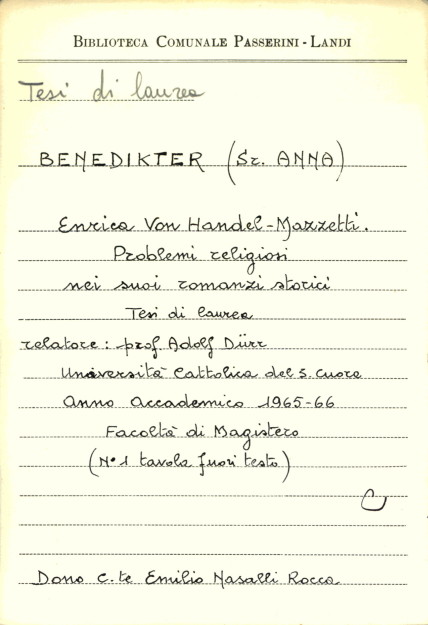 BIBLIOTECA COMUNALE PASSERINI - LANDI
Tesi di laurea
BENEDIKTER (Sr. ANNA)
Enrica Von Handel-Mazzetti.
Problemi religiosi
nei suoi romanzi storici
Tesi di laurea
relatore: prof. Adolf Dürr
Università Cattolica del S. Cuore
Anno Accademico 1965-66
Facoltà di Magistero
(N° 1 tavola fuori testo)
C
Dono C.te Emilio Nasalli Rocca